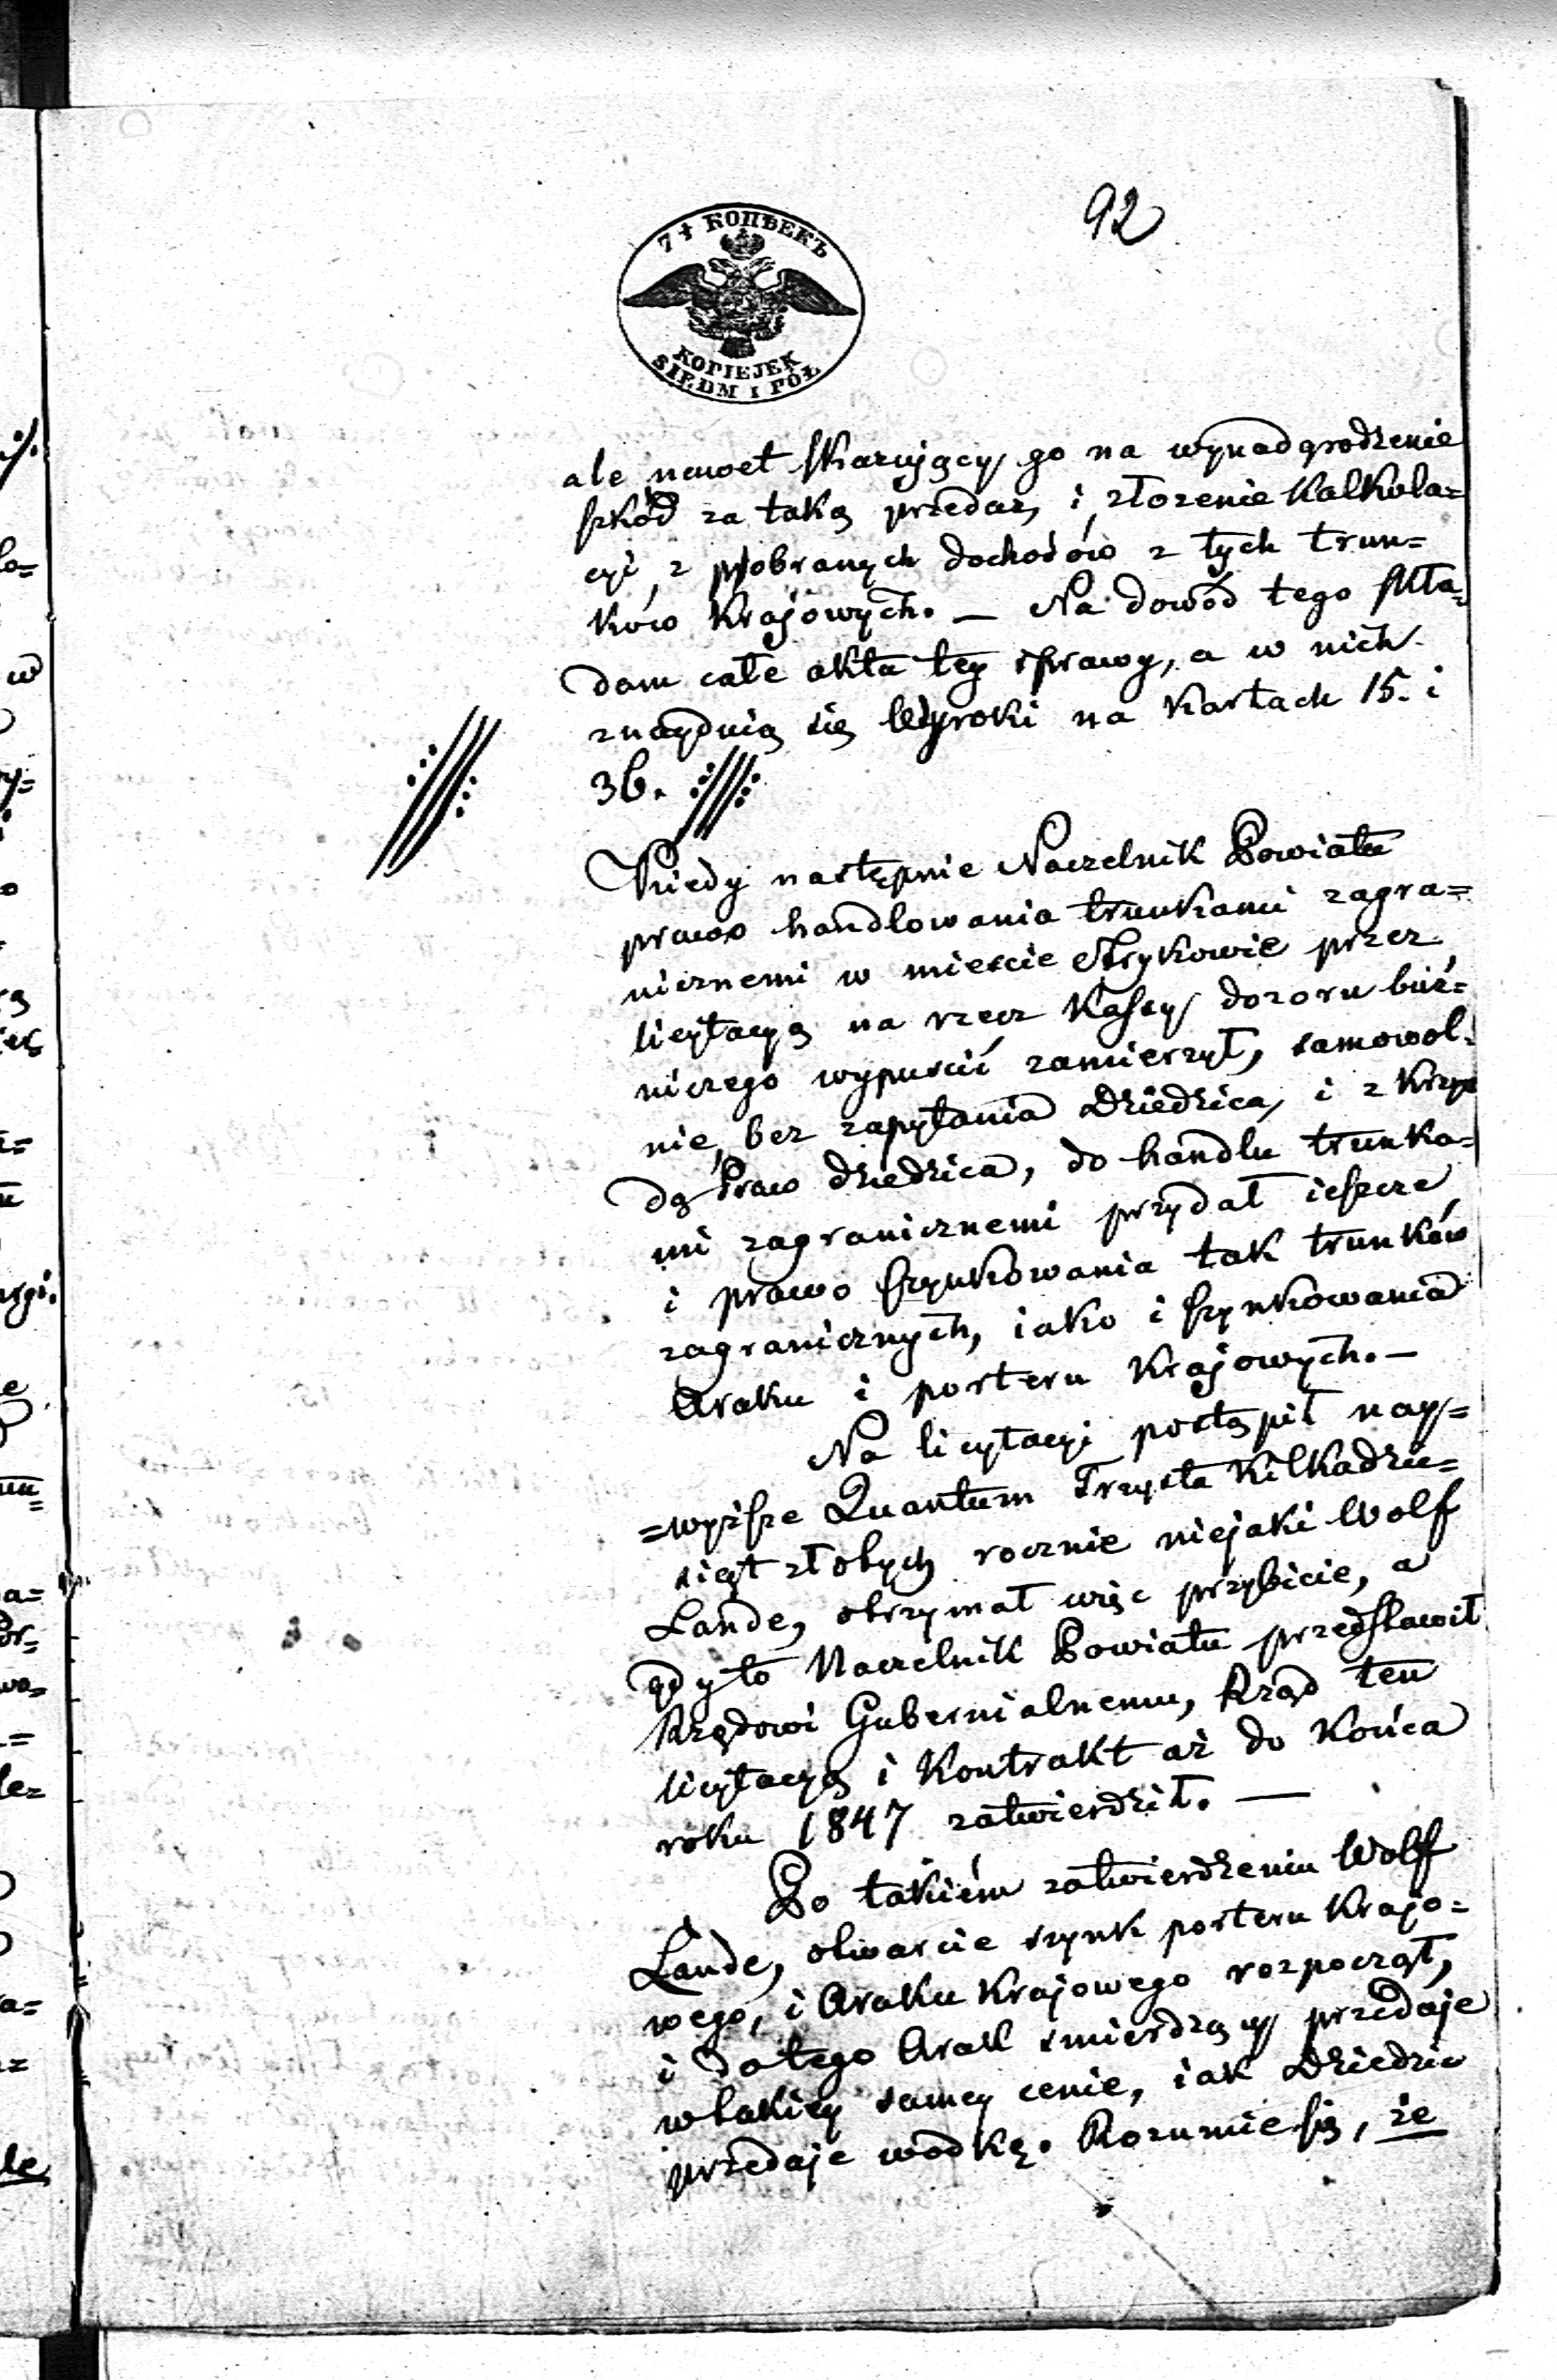 92
7½ КОПѢЕКЪ
KOPIEJEK
SIEDM I PÓŁ
ale nawet skazujący go na wynadgrodzenie
szkód za taką przedaż, i złożenie Kalkula=
cyi, z pobranych dochodów z tych trun=
ków Krajowych. — Na dowód tego skła=
dam całe akta tey sprawy, a w nich
znaydują się Wyroki na Kartach 15. i
36.
Kiedy następnie Naczelnik Powiatu
prawo handlowania trunkami zagra=
nicznemi w mieście Strykowie przez
licytacyą na rzecz Kassy dozoru búż=
niczego wypuścić zamierzył, samowol=
nie, bez zapytania Dziedzica, i z Krzyw
dą Praw dziedzica, do handlu trunka=
mi zagranicznemi przydał ieszcze
i prawo szynkowania tak trunków
zagranicznych, iako i szynkowania
Araku i porteru Krajowych. —
Na licytacyi postąpił nay=
=wyższe Quantum Trzysta Kilkadzie=
siąt złotych rocznie niejaki Wolf
Lande, otrzymał więc przybicie, a
gdy to Naczelnik Powiatu przedstawił
Rządowi Gubernialnemu, Rząd ten
licytacyą i Kontrakt aż do Końca
roku 1847 zatwierdził. —
Po takiém zatwierdzeniu Wolf
Lande, otwarcie szynk porteru Krajo=
wego, i Araku Krajowego rozpoczął,
i do tego Arak śmierdzący przedaje
w takiey samey cenie, iak Dziedzic
przedaje wodkę. Rozumie się, że